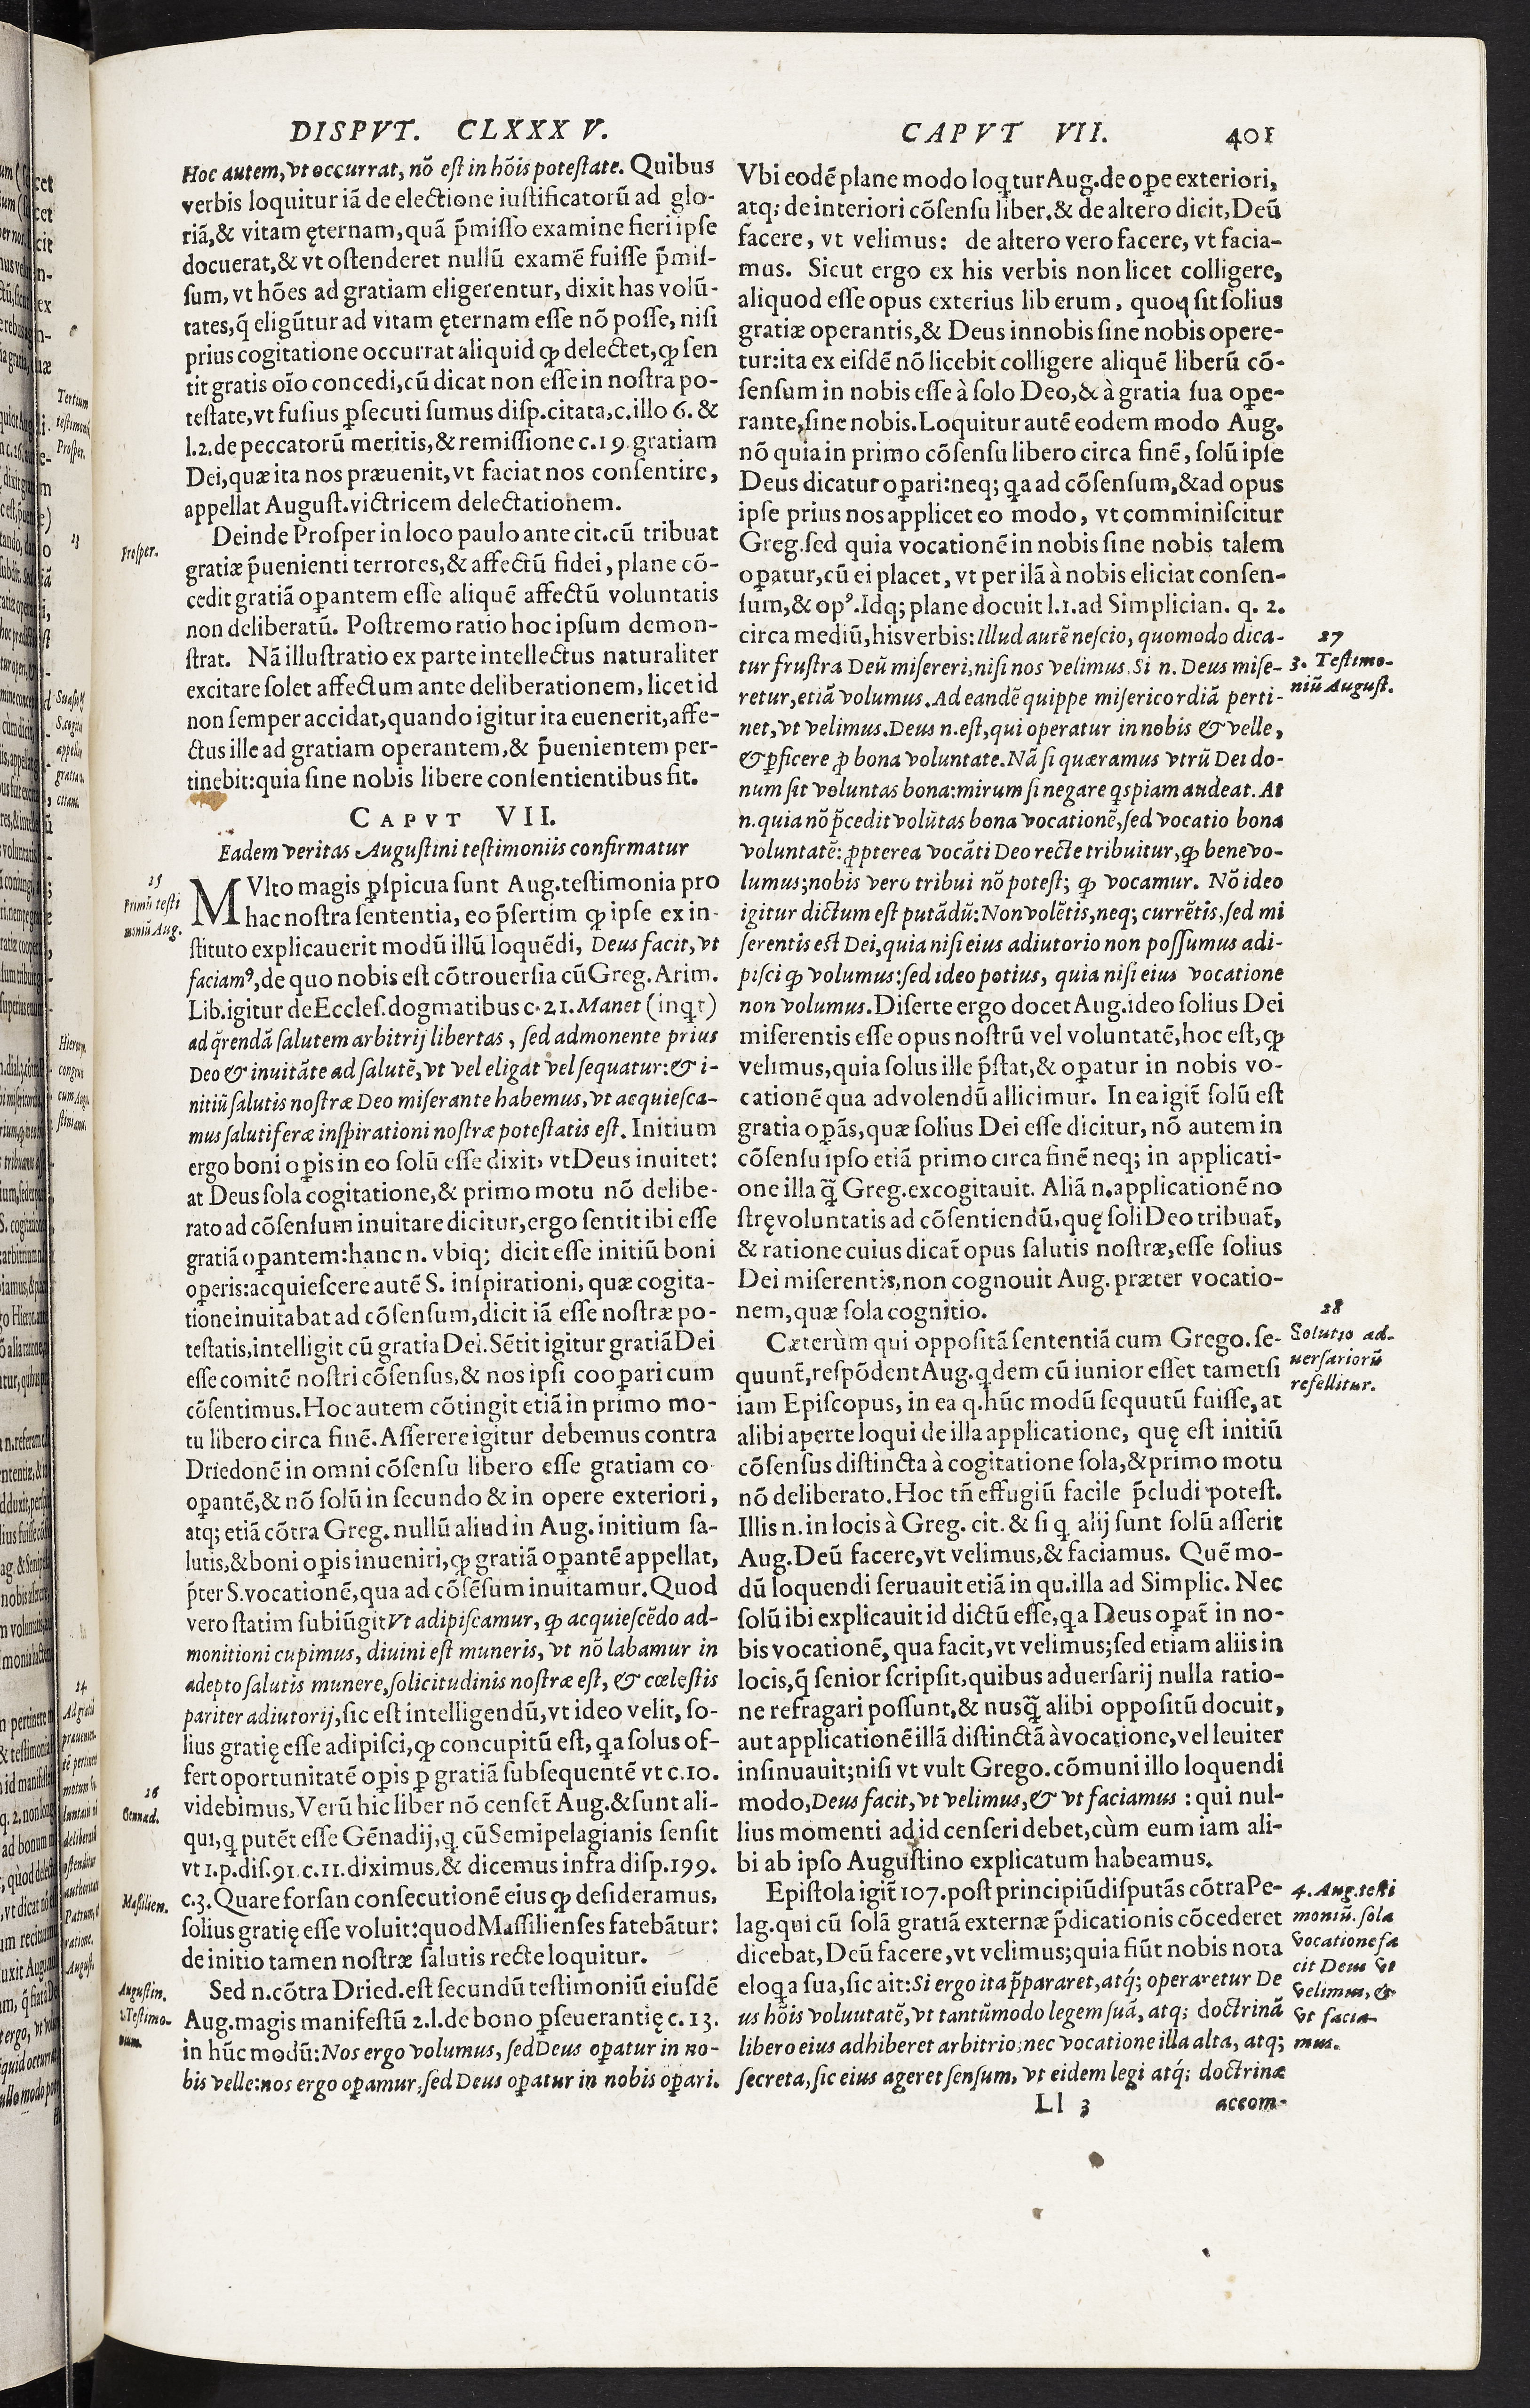 DISPVT. CLXXXV.
Hoc autem, vt occurrat, nō est in hōis potestate. Quibus
verbis loquitur iā de electione iustificatorū ad glo-
riā, & vitam ęternam, quā p̄misso examine fieri ipse
docuerat, & vt ostenderet nullū examē fuisse p̄mis-
sum, vt hōes ad gratiam eligerentur, dixit has volū-
tates, q̄ eligūtur ad vitam ęternam esse nō posse, nisi
prius cogitatione occurrat aliquid ꝙ delectet, ꝙ sen
tit gratis oīo concedi, cū dicat non esse in nostra po-
testate, vt fusius ꝑsecuti sumus disp. citata, c. illo 6. &
l. 2. de peccatorū meritis, & remissione c. 19 gratiam
Dei, quæ ita nos præuenit, vt faciat nos consentire,
appellat August. victricem delectationem.
Prosper.
Deinde Prosper in loco paulo ante cit. cū tribuat
gratiæ p̄uenienti terrores, & affectū fidei, plane cō-
cedit gratiā oꝑantem esse aliquē affectū voluntatis
non deliberatū. Postremo ratio hoc ipsum demon-
strat. Nā illustratio ex parte intellectus naturaliter
excitare solet affectum ante deliberationem, licet id
non semper accidat, quando igitur ita euenerit, affe-
ctus ille ad gratiam operantem, & p̄uenientem per-
tinebit: quia sine nobis libere consentientibus fit.
CAPVT VII.
Eadem veritas Augustini testimoniis confirmatur
25
Primū testi
moniū Aug.
MVlto magis ꝑspicua sunt Aug. testimonia pro
hac nostra sententia, eo p̄sertim ꝙ ipse ex in-
stituto explicauerit modū illū loquēdi, Deus facit, vt
faciamꝰ, de quo nobis est cōtrouersia cū Greg. Arim.
Lib. igitur de Eccles. dogmatibus c. 21. Manet (inqt)
ad q̄rendā salutem arbitrij libertas, sed admonente prius
Deo & inuitāte ad salutē, vt vel eligat vel sequatur: & i-
nitiū salutis nostræ Deo miserante habemus, vt acquiesca-
mus salutiferæ inspirationi nostræ potestatis est. Initium
ergo boni oꝑis in eo solū esse dixit, vt Deus inuitet:
at Deus sola cogitatione, & primo motu nō delibe-
rato ad cōsensum inuitare dicitur, ergo sentit ibi esse
gratiā oꝑantem: hanc n. vbiq; dicit esse initiū boni
operis: acquiescere autē S. inspirationi, quæ cogita-
tione inuitabat ad cōsensum, dicit iā esse nostræ po-
testatis, intelligit cū gratia Dei. Sētit igitur gratiā Dei
esse comitē nostri cōsensus, & nos ipsi cooꝑari cum
cōsentimus. Hoc autem cōtingit etiā in primo mo-
tu libero circa finē. Asserere igitur debemus contra
Driedonē in omni cōsensu libero esse gratiam co
oꝑantē, & nō solū in secundo & in opere exteriori,
atq; etiā cōtra Greg. nullū aliud in Aug. initium sa-
lutis, & boni oꝑis inueniri, ꝙ gratiā oꝑantē appellat,
p̄ter S. vocationē, qua ad cōsēsum inuitamur. Quod
vero statim subiūgit Vt adipiscamur, ꝙ acquiescēdo ad-
monitioni cupimus, diuini est muneris, vt nō labamur in
adepto salutis munere, solicitudinis nostræ est, & cœlestis
pariter adiutorij, sic est intelligendū, vt ideo velit, so-
lius gratię esse adipisci, ꝙ concupitū est, qa solus of-
fert oportunitatē oꝑis ꝑ gratiā subsequentē vt c. 10.
26
Gennad.
videbimus, Verū hic liber nō censet̄ Aug. & sunt ali-
qui, q putēt esse Gēnadij, q cū Semipelagianis sensit
vt 1. p. dis. 91. c. 11. diximus, & dicemus infra disp. 199.
Massilien.
c. 3. Quare forsan consecutionē eius ꝙ desideramus,
solius gratię esse voluit: quod Massilienses fatebātur:
de initio tamen nostræ salutis recte loquitur.
Augustin.
2. Testimo-
nium.
Sed n. cōtra Dried. est secundū testimoniū eiusdē
Aug. magis manifestū 2. l. de bono ꝑseuerantię c. 13.
in hūc modū: Nos ergo volumus, sed Deus oꝑatur in no-
bis velle: nos ergo oꝑamur, sed Deus oꝑatur in nobis oꝑari.
CAPVT VII. 401
Vbi eodē plane modo loqtur Aug. de oꝑe exteriori,
atq; de interiori cōsensu liber. & de altero dicit, Deū
facere, vt velimus: de altero vero facere, vt facia-
mus. Sicut ergo ex his verbis non licet colligere,
aliquod esse opus exterius liberum, quoq sit solius
gratiæ operantis, & Deus in nobis sine nobis opere-
tur: ita ex eisdē nō licebit colligere aliquē liberū cō-
sensum in nobis esse à solo Deo, & à gratia sua oꝑe-
rante, sine nobis. Loquitur autē eodem modo Aug.
nō quia in primo cōsensu libero circa finē, solū ipse
Deus dicatur oꝑari: neq; qa ad cōsensum, & ad opus
ipse prius nos applicet eo modo, vt comminiscitur
Greg. sed quia vocationē in nobis sine nobis talem
oꝑatur, cū ei placet, vt per ilā à nobis eliciat consen-
sum, & opꝰ. Idq; plane docuit l. 1. ad Simplician. q. 2.
27
3. Testimo-
niū August.
circa mediū, his verbis: Illud autē nescio, quomodo dica-
tur frustra Deū misereri, nisi nos velimus. Si n. Deus mise-
retur, etiā volumus. Ad eandē quippe misericordiā perti-
net, vt velimus. Deus n. est, qui operatur in nobis & velle,
& ꝑficere ꝓ bona voluntate. Nā si quæramus vtrū Dei do-
num sit voluntas bona: mirum si negare qspiam audeat. At
n. quia nō p̄cedit volūtas bona vocationē, sed vocatio bona
voluntatē: ꝓpterea vocāti Deo recte tribuitur, ꝙ bene vo-
lumus; nobis vero tribui nō potest; ꝙ vocamur. Nō ideo
igitur dictum est putādū: Non volētis, neq; currētis, sed mi
serentis est Dei, quia nisi eius adiutorio non possumus adi-
pisci ꝙ volumus: sed ideo potius, quia nisi eius vocatione
non volumus. Diserte ergo docet Aug. ideo solius Dei
miserentis esse opus nostrū vel voluntatē, hoc est, ꝙ
velimus, quia solus ille p̄stat, & oꝑatur in nobis vo-
cationē qua ad volendū allicimur. In ea igit̄ solū est
gratia oꝑās, quæ solius Dei esse dicitur, nō autem in
cōsensu ipso etiā primo circa finē neq; in applicati-
one illa q̄̄ Greg. excogitauit. Aliā n. applicationē no
strę voluntatis ad cōsentiendū, quę soli Deo tribuat̄,
& ratione cuius dicat̄ opus salutis nostræ, esse solius
Dei miserentis, non cognouit Aug. præter vocatio-
nem, quæ sola cognitio.
28
Solutio ad-
uersariorū
refellitur.
Cæterùm qui oppositā sententiā cum Grego. se-
quunt̄, respōdent Aug. qdem cū iunior esset tametsi
iam Episcopus, in ea q. hūc modū sequutū fuisse, at
alibi aperte loqui de illa applicatione, quę est initiū
cōsensus distincta à cogitatione sola, & primo motu
nō deliberato. Hoc tn̄ effugiū facile p̄cludi potest.
Illis n. in locis à Greg. cit. & si q alij sunt solū asserit
Aug. Deū facere, vt velimus, & faciamus. Quē mo-
dū loquendi seruauit etiā in qu. illa ad Simplic. Nec
solū ibi explicauit id dictū esse, qa Deus oꝑat̄ in no-
bis vocationē, qua facit, vt velimus; sed etiam aliis in
locis, q̄ senior scripsit, quibus aduersarij nulla ratio-
ne refragari possunt, & nusq̄ alibi oppositū docuit,
aut applicationē illā distinctā à vocatione, vel leuiter
insinuauit; nisi vt vult Grego. cōmuni illo loquendi
modo, Deus facit, vt velimus, & vt faciamus: qui nul-
lius momenti ad id censeri debet, cùm eum iam ali-
bi ab ipso Augustino explicatum habeamus.
4. Aug. testi
moniū. sola
vocatione fa
cit Deus vt
velimus, &
vt facia-
mus.
Epistola igit̄ 107. post principiū disputās cōtra Pe-
lag. qui cū solā gratiā externæ p̄dicationis cōcederet
dicebat, Deū facere, vt velimus; quia fiūt nobis nota
eloqa sua, sic ait: Si ergo ita p̄pararet, atq́; operaretur De
us hōis voluutatē, vt tantūmodo legem suā, atq; doctrinā
libero eius adhiberet arbitrio, nec vocatione illa alta, atq;
secreta, sic eius ageret sensum, vt eidem legi atq́; doctrinæ
Ll 3 accom-